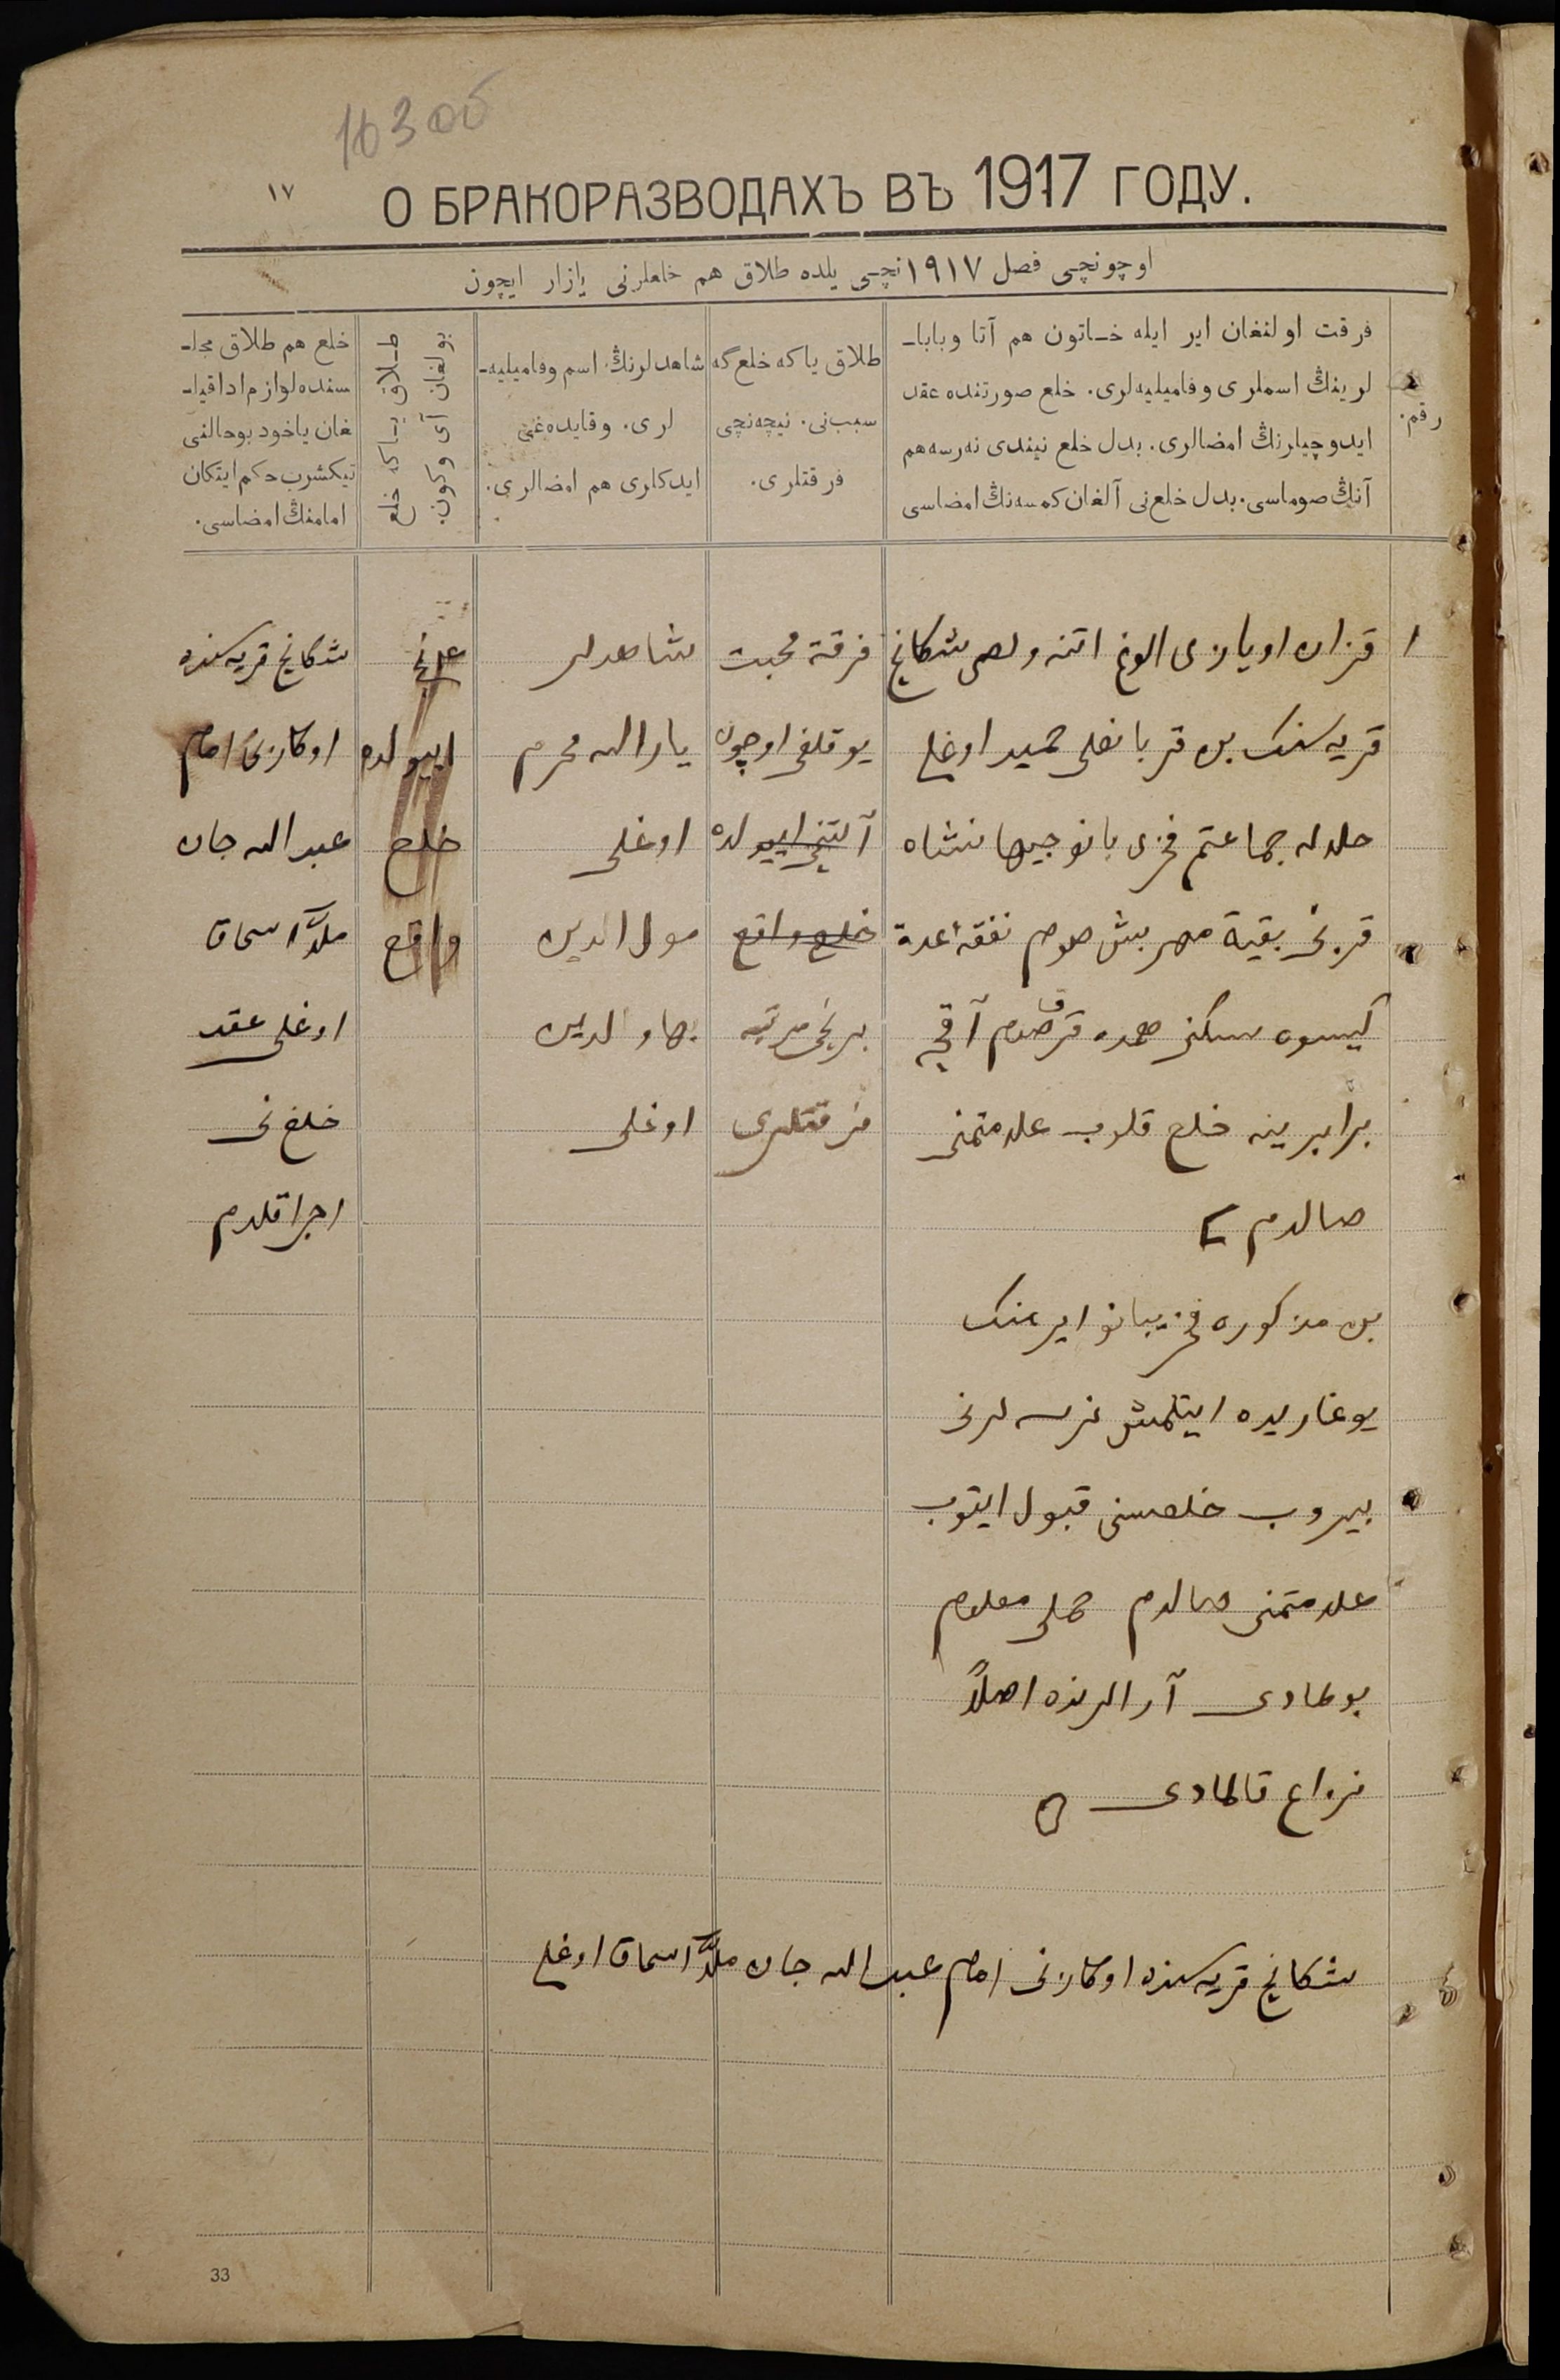 163 об
١٧
О БРАКОРАЗВОДАХЪ ВЪ 1917 ГОДУ.
اوچونچی فصل ١٩١٧ نچی یلده طلاق هم خلعلرنی یازار ایچون
رقم.
فرقت اولنغان ایر ایله خاتون هم آتا وبابا-
لرینڭ اسملری وفامیلیه‌لری. خلع صورتنده عقد
ایدوچیلرنڭ امضالری. بدل خلع نیندی نه‌رسه هم
آنڭ صوماسی. بدل خلع نی آلغان کمسه‌نڭ امضاسی
طلاق یاکه خلع گه
سبب نی. نیچه‌نچی
فرقتلری.
شاهدلرنڭ اسم وفامیلیه-
لری. وقایده‌غی
ایدکلری هم امضالری.
طلاق یاکه خلع
بولغان آی وکون.
خلع هم طلاق مجلـ-
سنده لوازم ادا قیلـ-
غان یاخود بوحالنی
تیکشرب حکم ایتکان
امامنڭ امضاسی.
١
قزان اویازی الوغ اتنه ولصی شکانچ
قریه سنک بن قربانعلی حمید اوغلی
حلالم جماعتم فخری بانو جیهانشاه
قزینی بقیة مهر بیش صوم نفقهٔ عدة
کیسوه سکنی همده قرق صوم آقچه
برابرینه خلع قلوب علامتمنی
صالدم
بن مذکوره فخریبانو ایرمنک
یوغاریده ایتلمش نرسه لرنی
بیروب خلعسنی قبول ایتوب
علامتمنی صالدم حملی معلوم
بولمادی آرالرنده اصلاً
نزاع قالمادی
فرقة محبت
یوقلغی اوچون
آلتنچی اییولده
خلع واقع
برنچی مرتبه
فرقتلری
شاهدلر
یارالله محرم
اوغلی
مولى الدین
بهاوالدین
اوغلی
اییولده
خلع
واقع
شکانچ قریه سنده
اوکازنی امام
عبدالله جان
ملا اسحاق
اوغلی عقد
خلع نی
اجرا قلدم
شکانچ قریه سنده اوکازنی امام عبدالله جان ملا اسحاق اوغلی
33